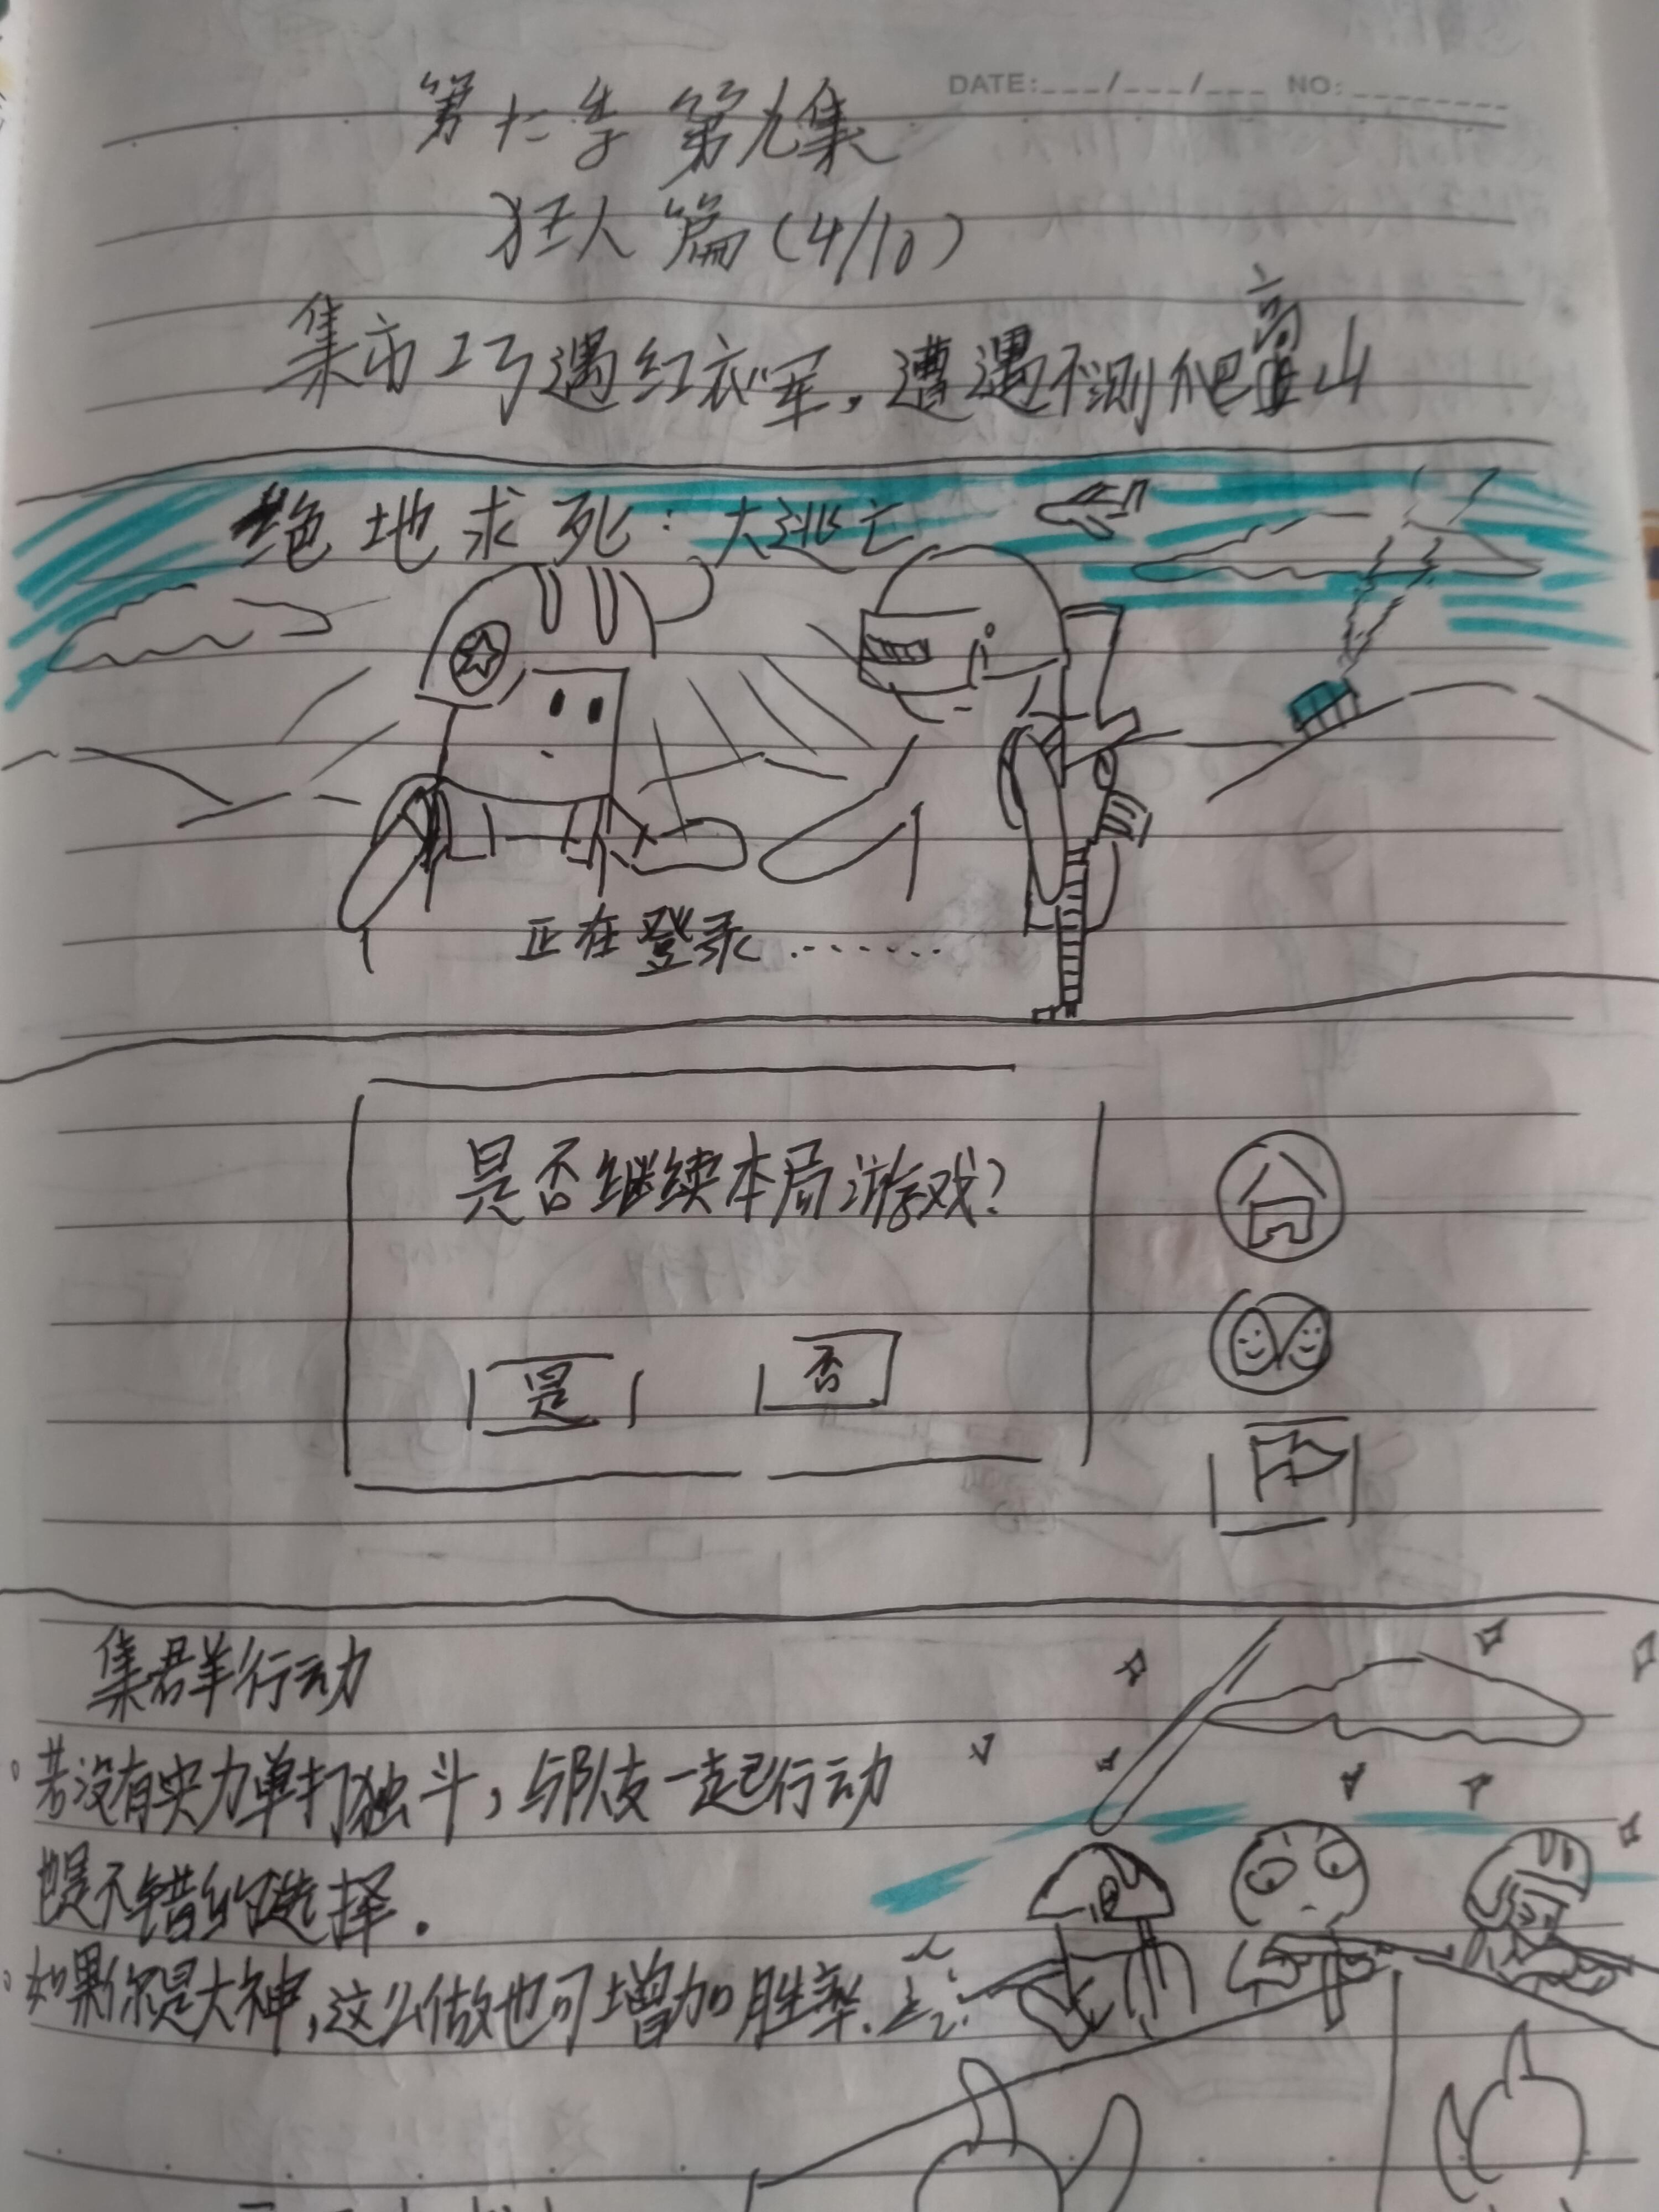 DATE:___/___/___ NO:________
第七季 第九集
狂人篇(4/10)
集市巧遇红衣军,遭遇不测爬高山
绝地求死:大逃亡
正在登录.......
是否继续本局游戏?
是 否
集群行动
。若没有实力单打独斗,与队友一起行动
也是不错的选择.
。如果你是大神,这么做也可增加胜率.